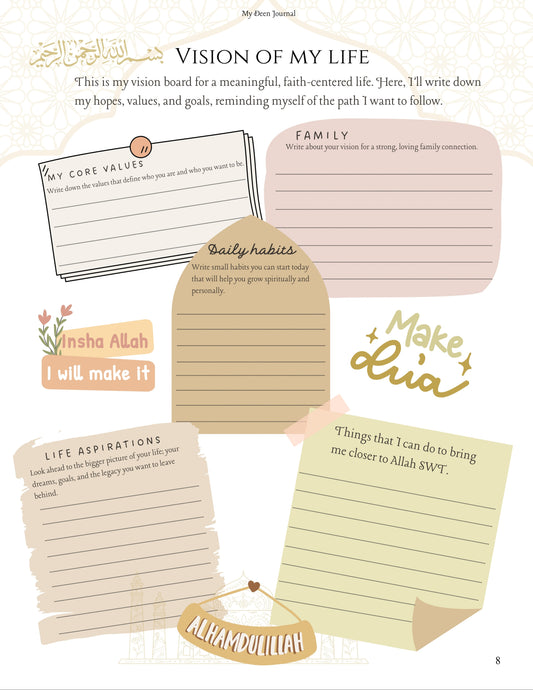 My Deen Journal
بسم الله الرحمن الرحيم
Vision of my life
This is my vision board for a meaningful, faith-centered life. Here, I'll write down
my hopes, values, and goals, reminding myself of the path I want to follow.
MY CORE VALUES
Write down the values that define who you are and who you want to be.
FAMILY
Write about your vision for a strong, loving family connection.
Daily habits
Write small habits you can start today
that will help you grow spiritually and
personally.
Insha Allah
I will make it
Make
du'a
LIFE ASPIRATIONS
Look ahead to the bigger picture of your life; your
dreams, goals, and the legacy you want to leave
behind.
Things that I can do to bring
me closer to Allah SWT.
ALHAMDULILLAH
8